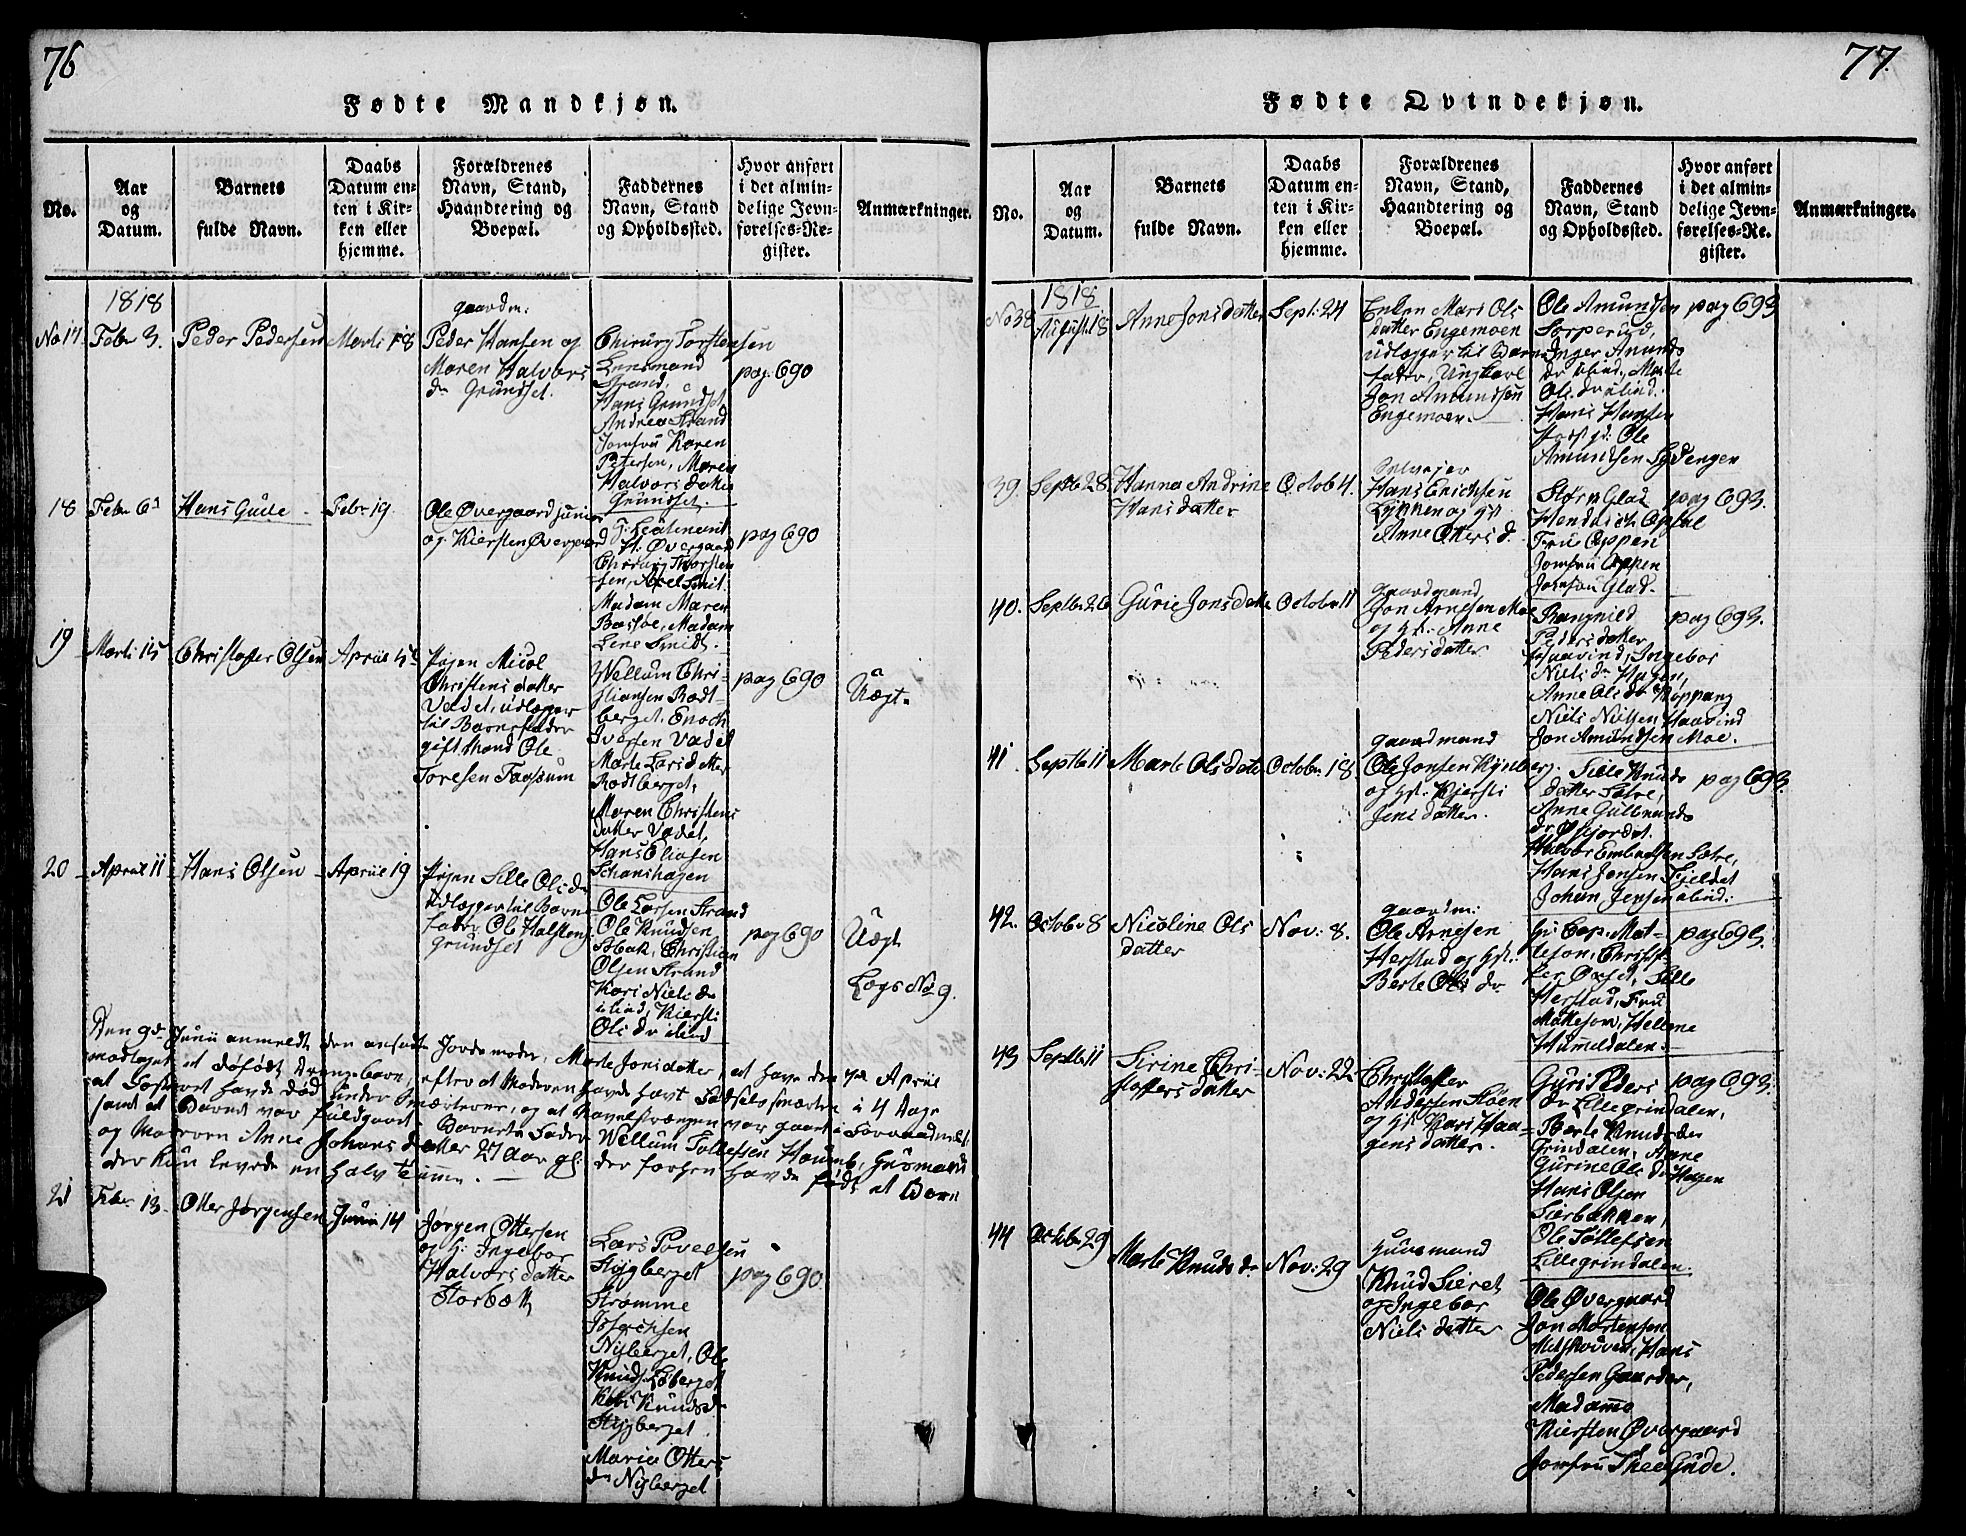 76
Fødte Mandkjøn.
No.
Aar
og
Datum.
Barnets
fulde Navn.
Daabs
Datum en-
ten i Kir-
ken eller
hjemme.
Forældrenes
Navn, Stand,
Haandtering og
Boepæl.
Faddernes
Navn, Stand
og Opholdssted.
Hvor anført
i det almin-
delige Jevn-
førelses-Re-
gister.
Anmærkninger.
1818
No 17.
Febr 3.
Peder Pedersen
Marti 18
gaardm:
Peder Hansen og
Maren Halvors
dr Grundset.
Chirurg Torstensen
Lensmand
Strand,
Hans Grundset
Andrea Strand
Jomfru Karen
Petersen, Maren
Halvorsdatter
Grundset.
pag. 690
18
Febr 6
Hans Gude
Febr 19.
Ole Øvergaard junior
og Kiersten Øvergaard
H. Øvergaard
Chirurg Thorsten-
sen, Axel Smit.
Madam Maren
Basøe, Madam
Lene Smidt.
pag 690
19
Marti 15
Christoffer Olsen
Aprill 5
Pigen Micol
Christensdatter
Vadet, udlægger
til Barnefader
gift Mand Ole
Toresen Fagssum
Wellum Chri-
stiansen Rødt-
berget, Enoch
Iversen Vadet
Marte Larsdatter
Rødtberget,
Maren Christens
datter Vadet,
Hans Eliasen
Schanshagen
pag 690
Uægt.
20
Aprill 11
Hans Olsen
Apriil 19
Pigen Sille Olsdr
Udlægger til Barne-
fader Ole Halstens
grundset
Ole Larsen Strand
Ole Knudsen
Christian
Olsen Strand
Kari Niels dr
ibid, Kiersti
Ols dr ibid
pag 690
Uægt
Lægs No 9.
Den 9de Junii anmeldt den ansatte Jordemoder, Marte Jonsdatter, at have den 7de Apriil
modtaget et dødfødt Drengebarn, efter at Moderen havde havt Fødselssmerter i 4 Dage
at Fosteret havde død under Smerterne, og at Navelstrængen var gaaet i Forraadnelse
samt at Barnet var fuldgaaet. Barnets Fader Wellum Tollefsen Houmb, Huusmand
og Moderen Anne Johansdatter 27 Aar gl: der forhen havde født et Barn
der kun levede en halv Time.
21
Febr 13.
Otter Jørgensen
Junii 14
Jørgen Ottersen
og h: Ingebor
Halvorsdatter
Storbæk
Lars Povelsen
Stygberget
Stramme
Nyberget, Ole
Knuds Løberget
Kari Knudsdr
Stygberget
Maria Otters
dr Nyberget
pag 690
77.
Fødte Qvindekjøn.
No.
Aar
og
Datum.
Barnets
fulde Navn.
Daabs
Datum en-
ten i Kir-
ken eller
hjemme.
Forældrenes
Navn, Stand,
Haandtering og
Boepæl.
Faddernes
Navn, Stand
og Opholdssted.
Hvor anført
i det almin-
delige Jevn-
førelses-Re-
gister.
Anmærkninger.
1818
No 38
August 18
Anne Jonsdatter
Sept: 24
Enken Mari Ols
datter Engemoen
udlægger til Barne-
fader, Ungkarl
Jon Amundsen
Engemoen.
Ole Amundsen
Sorperud,
Inger Amunds
dr ibid, Marte
Ols dr ibid.
Hans Hansen
Ole
Amundsen Sydengen
pag 693
39.
Septbr 28.
Hanna Andrine
Hansdatter
Octob 4.
Selvejer
Hans Erichsen
Lykken og h:
Anne Ottersd.
Størn Glad
Hendrich Oppen
Frue Oppen
Jomfru Oppen
Jomfru Glad.
pag 693.
40.
Septbr 26
Gurie Jonsdatter
Octobr 11
gaardmand
Jon Arnesen Moe
og h: Anne
Pedersdatter
Rangnild
Pedersdatter
Haavind, Ingebor
Niels dr Hagen,
Anne Ols dr Koppang
Niels Nielsen Haavind
Jon Amundsen Moe.
pag 693.
41.
Septbr 11
Marte Olsdatter
Octobr. 18
gaardmand
Ole Jonsen Kynberg.
og h: Kjersti
Jensdatter.
Sille Knuds
datter Sætre,
Anne Gulbrands
dr Øfjordet.
Halvor Embretsen Sætre,
Hans Jensen Fjeldet
Johan Jensen ibid:
pag 693.
42.
Octobr 8
Nicoline Ols
datter
Nov: 8.
gaardm:
Ole Arnesen
Herstad og h:
Berte Ols dr
Hr: Cap: Mat-
teson, Christof-
fer Sille
Herstad, Frue
Matteson, Hellene
Hummeldalen.
pag 693.
43
Septbr 11
Sirine Chri-
stoffersdatter
Nov: 22
Christoffer
Andersen Støen
og h: Kari Haa-
gensdatter.
Guri Peders
dr Lillegrindalen,
Berte Knudsdr
Grindalen, Anne
Gurine Ols dr Hagen
Hans Olsen
Sierbakken,
Ole Tollefsen
Lillegrindalen.
pag 693.
44
Octobr 29
Marte Knudsdr
Nov: 29
Huusmand
Knud Lieret
og Ingebor
Nielsdatter
Ole Øvergaard
Jon Mortensen
Melskovven, Hans
Pedersen Gaarder,
Madamme
Kiersten Øvergaard
Jomfru Thea Gude.